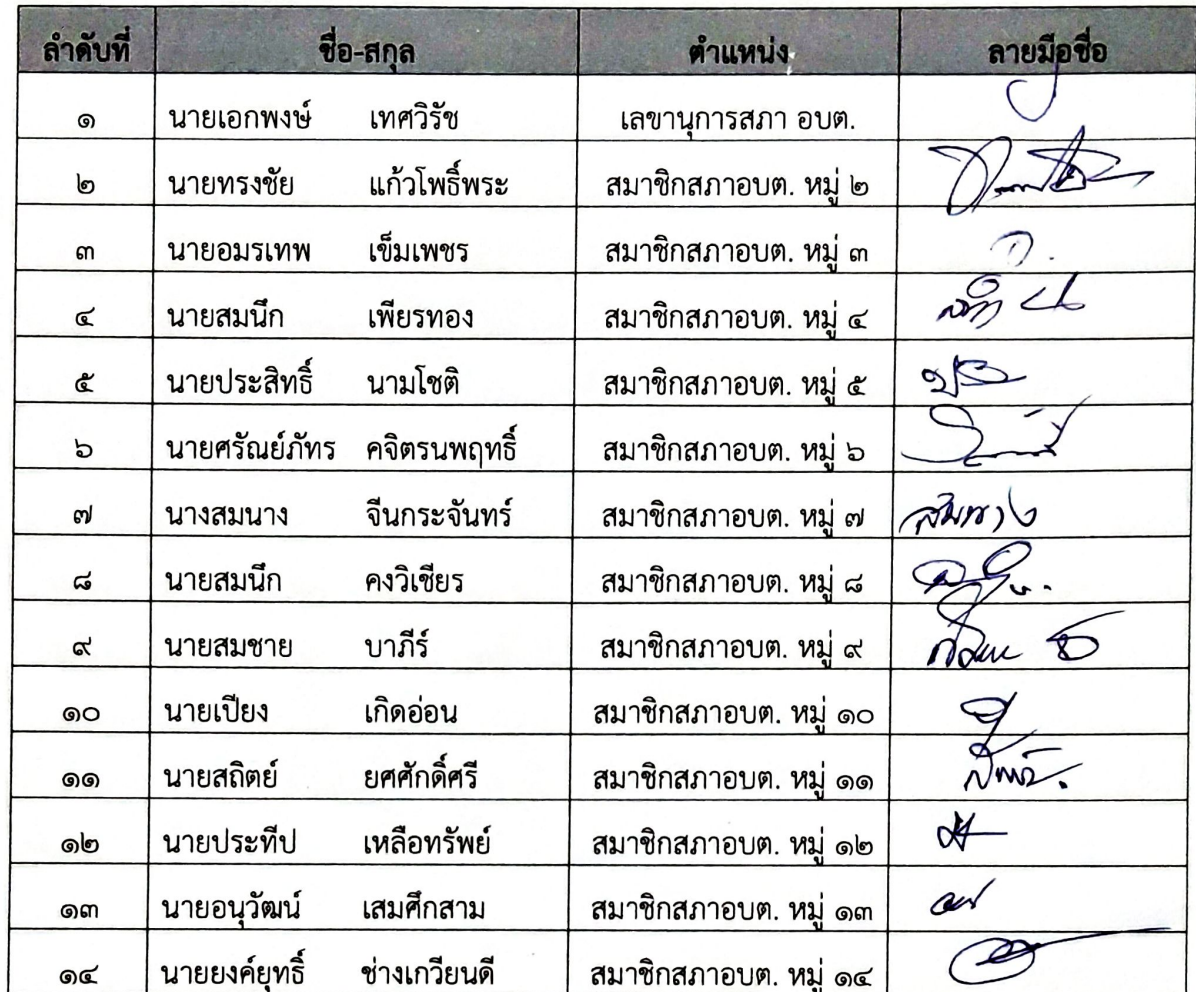 ลำดับที่ ชื่อ-สกุล ตำแหน่ง ลายมือชื่อ
๑ นายเอกพงษ์ เทศวิรัช เลขานุการสภา อบต.
๒ นายทรงชัย แก้วโพธิ์พระ สมาชิกสภาอบต. หมู่ ๒
๓ นายอมรเทพ เข็มเพชร สมาชิกสภาอบต. หมู่ ๓
๔ นายสมนึก เพียรทอง สมาชิกสภาอบต. หมู่ ๔
๕ นายประสิทธิ์ นามโชติ สมาชิกสภาอบต. หมู่ ๕
๖ นายศรัณย์ภัทร คจิตรนพฤทธิ์ สมาชิกสภาอบต. หมู่ ๖
๗ นางสมนาง จีนกระจันทร์ สมาชิกสภาอบต. หมู่ ๗
๘ นายสมนึก คงวิเชียร สมาชิกสภาอบต. หมู่ ๘
๙ นายสมชาย บาภีร์ สมาชิกสภาอบต. หมู่ ๙
๑๐ นายเปียง เกิดอ่อน สมาชิกสภาอบต. หมู่ ๑๐
๑๑ นายสถิตย์ ยศศักดิ์ศรี สมาชิกสภาอบต. หมู่ ๑๑
๑๒ นายประทีป เหลือทรัพย์ สมาชิกสภาอบต. หมู่ ๑๒
๑๓ นายอนุวัฒน์ เสมศึกสาม สมาชิกสภาอบต. หมู่ ๑๓
๑๔ นายยงค์ยุทธิ์ ช่างเกวียนดี สมาชิกสภาอบต. หมู่ ๑๔